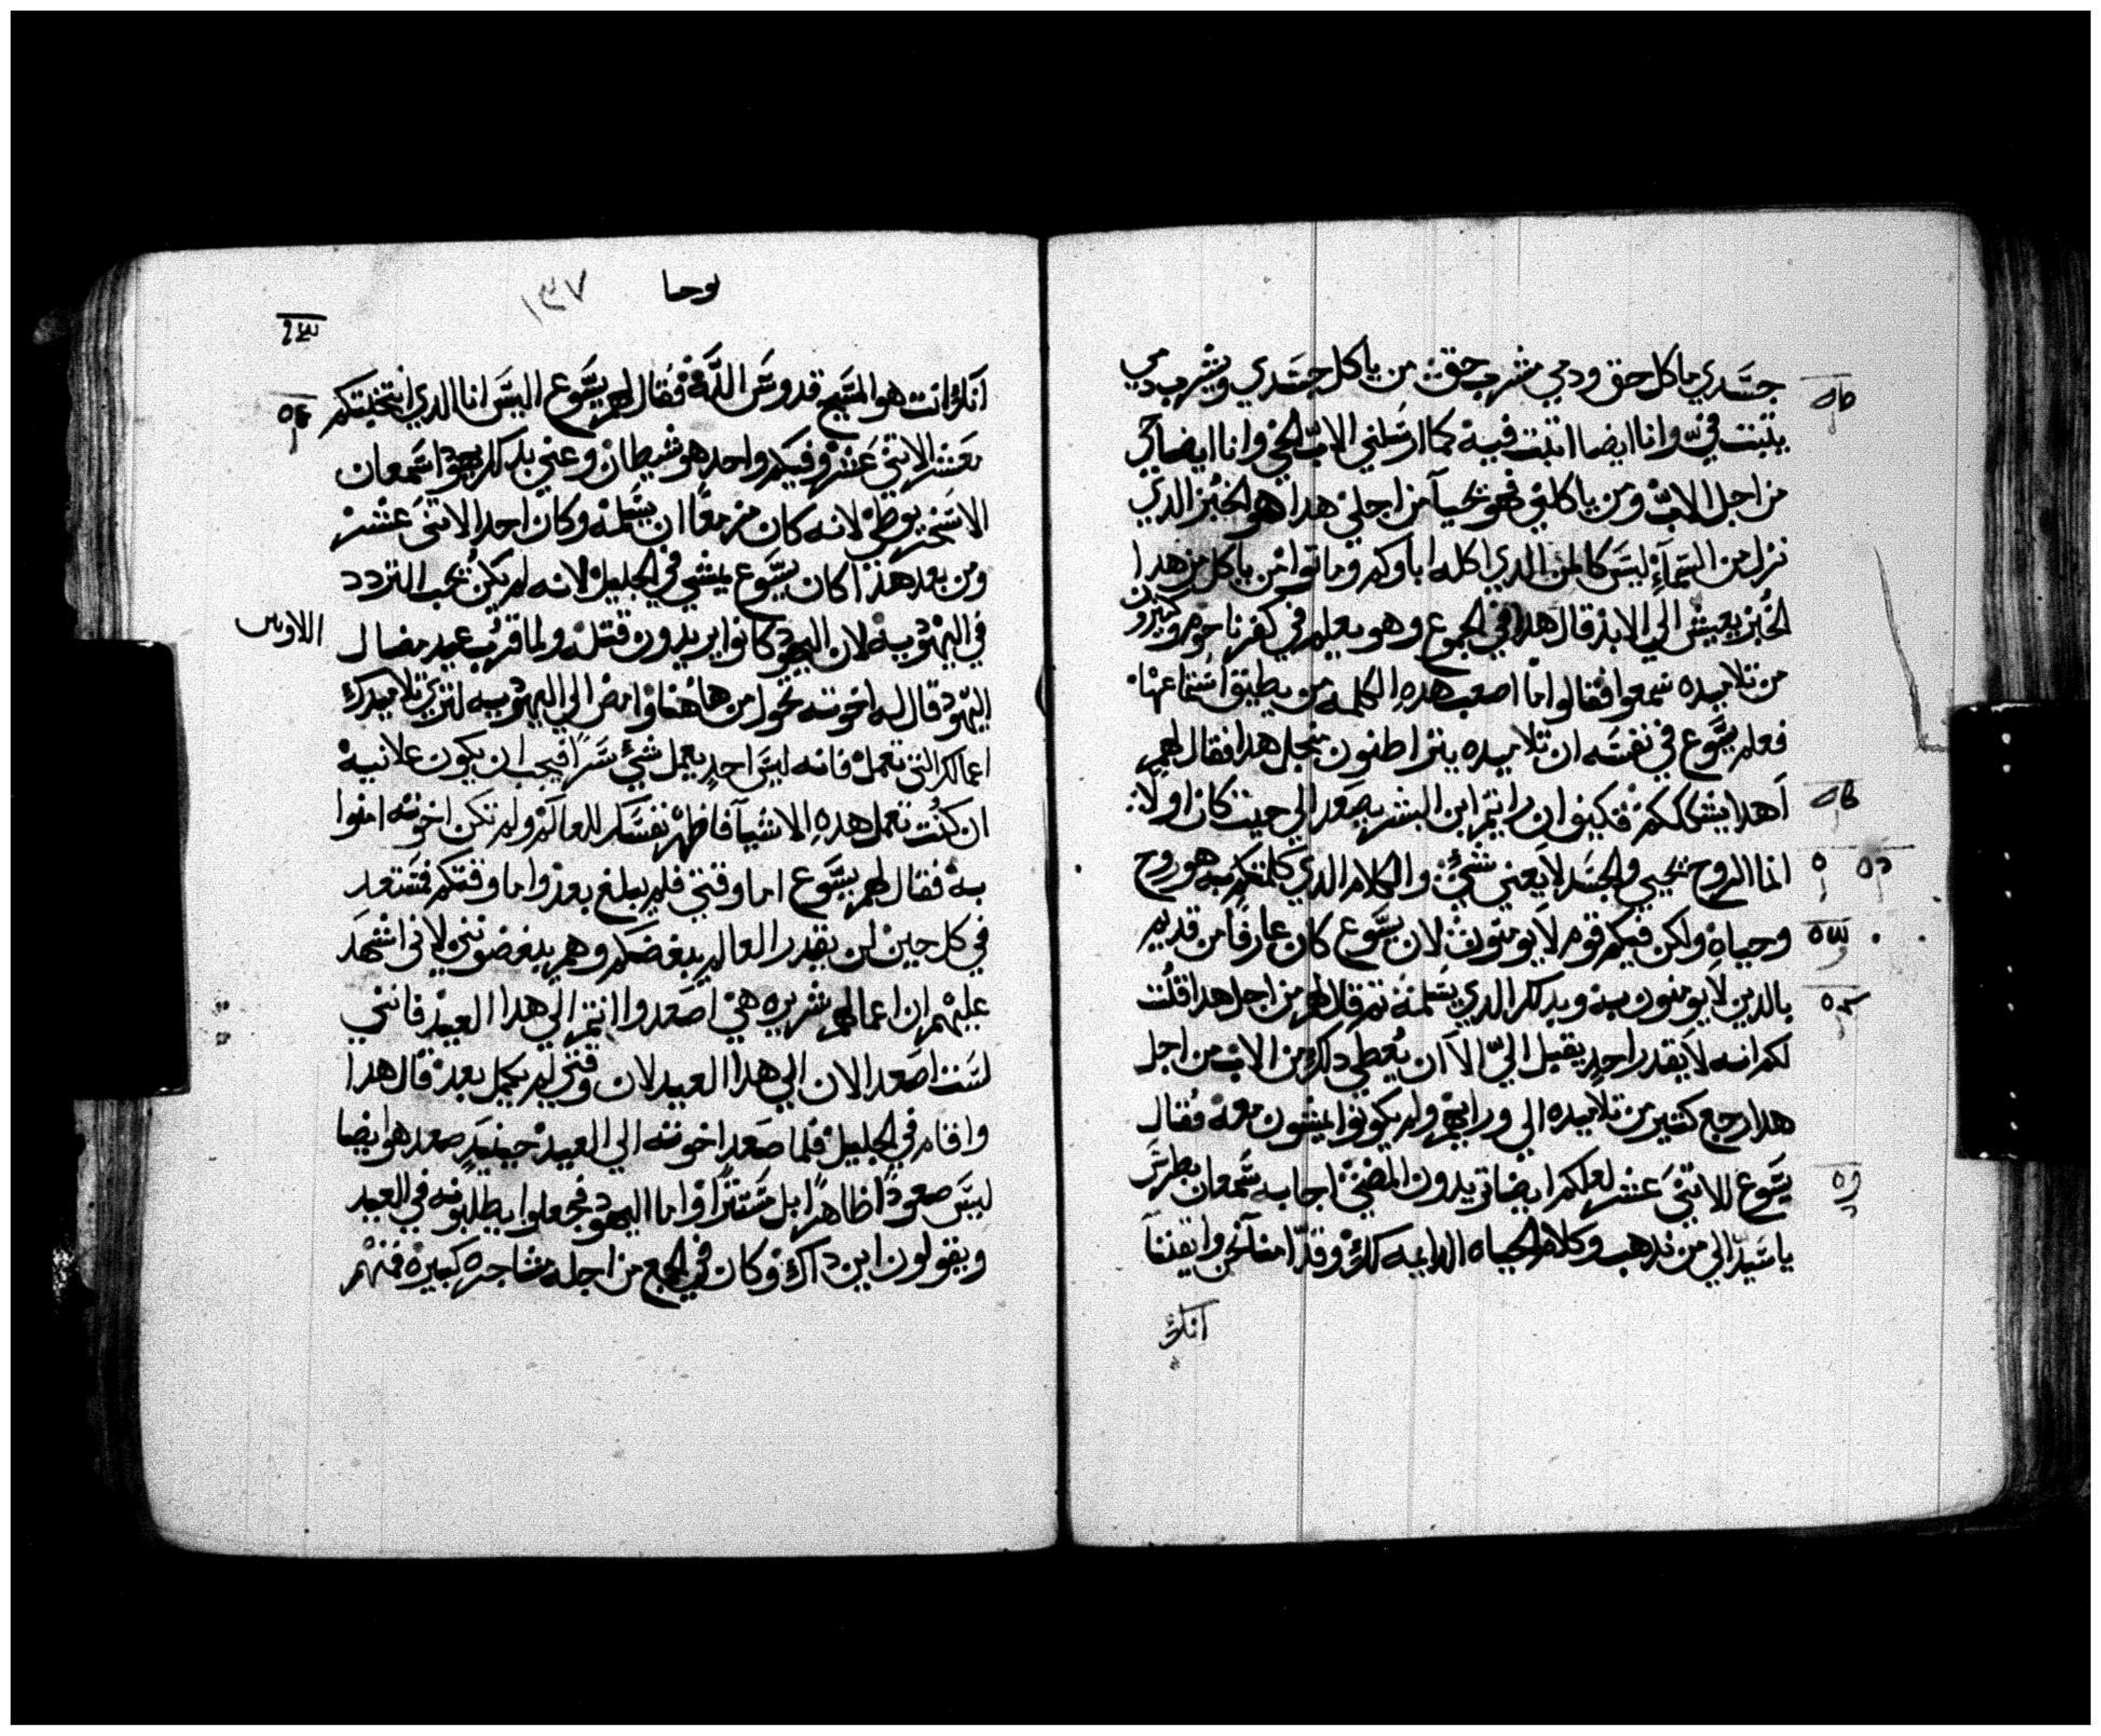 جسدي ماكل حق ودمي مشرب حق من ياكل جسدي ويشرب دمي
يتبت في وانا ايضا اتبت فيه كما ارسلني الاب الحي وانا ايضا حي
من اجل الاب ومن ياكلني فهو يحيا من اجلي هدا هو الخبز الدي
نزل من السماء ليس كالمن الدي اكله اباوكم وماتوا من ياكل من هدا
الخبز يعيش الي الابد قال هدا في الجموع وهو يعلم في كفرناحوم وكثيرون
من تلاميده سمعوا فقالوا ما اصعب هده الكلمه من يطيق استماعها
فعلم يسوع في نفسه ان تلاميده يتراطنون من اجل هدا فقال لهم
اهدا يشككم فكيف ان رايتم ابن البشر يصعد الي حيت كان اولا
انما الروح تحيي والجسد لا يعني شي والكلام الدي كلمتكم به هو روح
وحياه ولكن فيكم قوم لا يومنون لان يسوع كان عارفا من قديم
بالدين لا يومنون به وبدلك الدي يسلمه تم قال لهم من اجل هدا قلت
لكم انه لا يقدر احد يقبل الي الا ان يعطي دلك من الاب من اجل
هدا رجع كتير من تلاميده الي ورايهم ولم يكونوا يمشون معه فقال
يسوع للاتني عشر لعلكم ايضا تريدون المضي اجابه سمعان بطرس
ياسيد الي من ندهب وكلام الحياه الدايمه لك وقد امنا نحن وايقننا
انك
يوحنا ١٣٧
انك انت هو المسيح قدوس الله فقال لهم يسوع اليس انا الدي انتخبتكم
معشر الاتني عشر وفيكم واحد هو شيطان وعني بدلك يهودا سمعان
الاسخريوطي لانه كان مزمعا ان يسلمه وكان احد الاتني عشر
ومن بعد هذا كان يسوع يمشي في الجليل لانه لم يكن يحب التردد
في اليهوديه لان اليهود كانوا يريدون قتله ولما قرب عيد مضال
اليهود قال له اخوته تحول من هاهنا وامض الي اليهوديه لتري تلاميدك
اعمالك التي تعمل فانه ليس احد يعمل شي سرا فيجب ان يكون علانيه
ان كنت تعمل هده الاشيا فاظهر نفسك للعالم ولم تكن اخوته امنوا
به فقال لهم يسوع اما وقتي فلم يبلغ بعد واما وقتكم فمستعد
في كل حين لن يقدر العالم يبغضكم وهم يبغضونني لاني اشهد
عليهم ان اعمالهم شريره هي اصعدوا انتم الي هدا العيد فانني
لست اصعد الان الي هدا العيد لان وقتي لم يكمل بعد قال هدا
واقام في الجليل فلما صعد اخوته الي العيد حينيد صعد هو ايضا
ليس صعودا ظاهرا بل مستترا واما اليهود فجعلوا يطلبونه في العيد
ويقولون اين داك وكان في الجمع من اجله مشاجره كبيره فمنهم